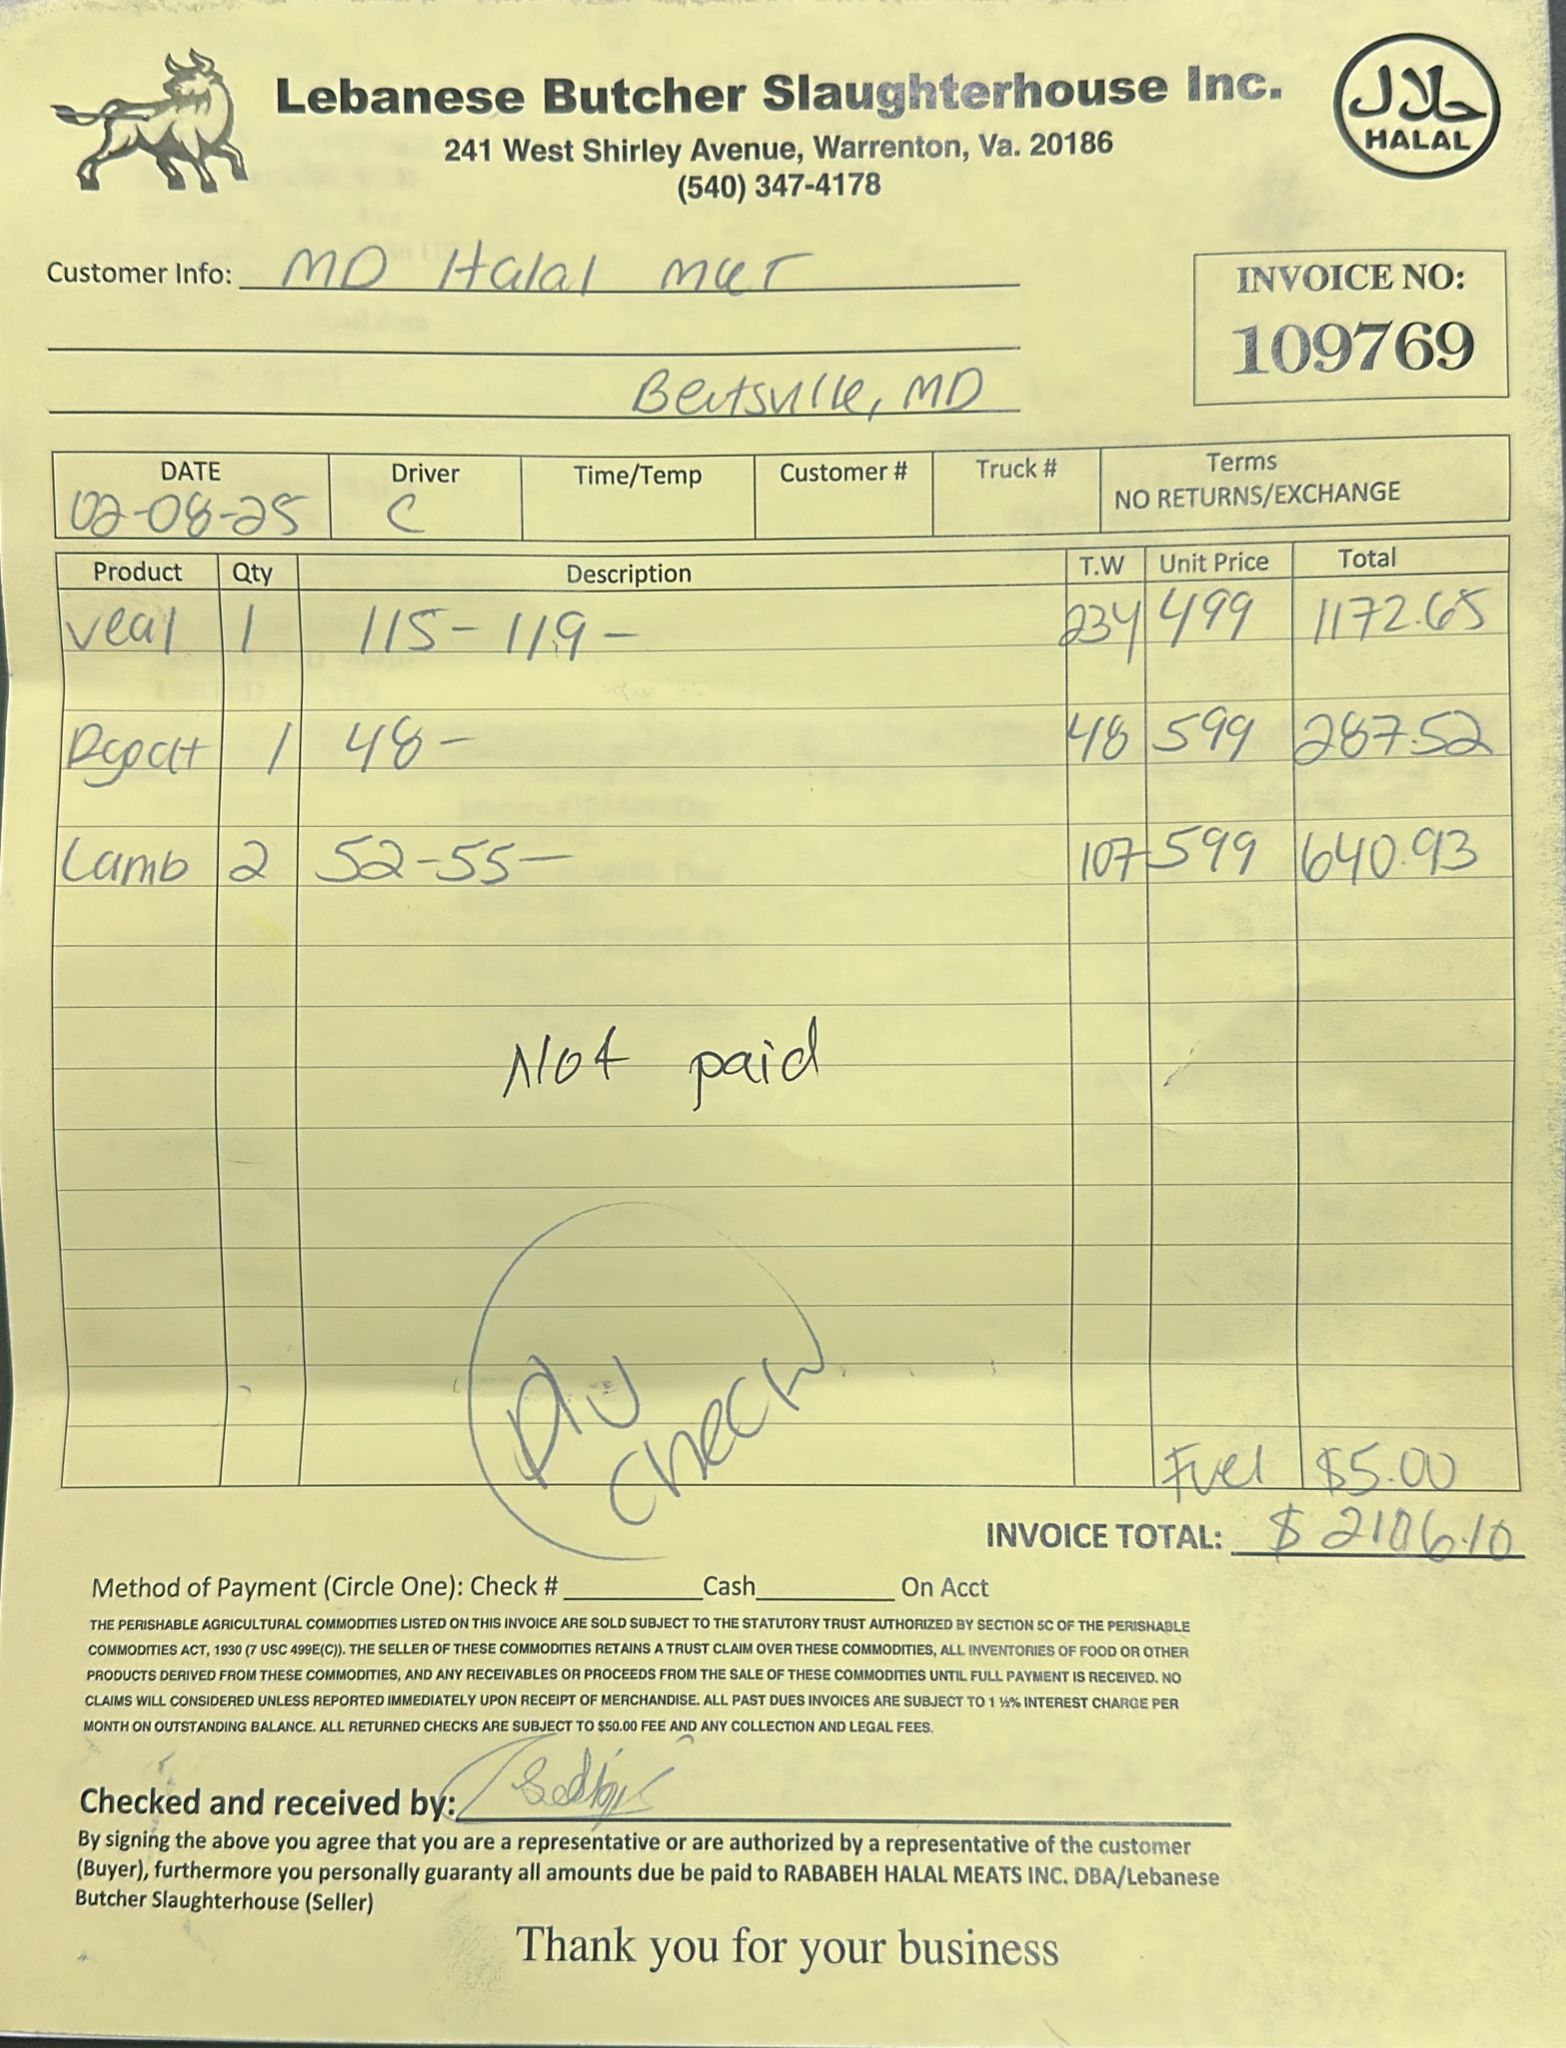 Lebanese Butcher Slaughterhouse Inc.
241 West Shirley Avenue, Warrenton, Va. 20186
(540) 347-4178
حلال
HALAL
Customer Info: MD Halal MKT
Beltsville, MD
INVOICE NO:
109769
DATE Driver Time/Temp Customer # Truck # Terms
02-08-25 C NO RETURNS/EXCHANGE
Product Qty Description T.W Unit Price Total
Veal 1 115- 119- 234 499 1172.65
Rgoat 1 48- 48 599 287.52
Lamb 2 52-55- 107 599 640.93
Not paid
P/U
Check
Fuel $5.00
INVOICE TOTAL: $ 2106.10
Method of Payment (Circle One): Check # Cash On Acct
THE PERISHABLE AGRICULTURAL COMMODITIES LISTED ON THIS INVOICE ARE SOLD SUBJECT TO THE STATUTORY TRUST AUTHORIZED BY SECTION 5C OF THE PERISHABLE
COMMODITIES ACT, 1930 (7 USC 499E(C)). THE SELLER OF THESE COMMODITIES RETAINS A TRUST CLAIM OVER THESE COMMODITIES, ALL INVENTORIES OF FOOD OR OTHER
PRODUCTS DERIVED FROM THESE COMMODITIES, AND ANY RECEIVABLES OR PROCEEDS FROM THE SALE OF THESE COMMODITIES UNTIL FULL PAYMENT IS RECEIVED. NO
CLAIMS WILL CONSIDERED UNLESS REPORTED IMMEDIATELY UPON RECEIPT OF MERCHANDISE. ALL PAST DUES INVOICES ARE SUBJECT TO 1 ½% INTEREST CHARGE PER
MONTH ON OUTSTANDING BALANCE. ALL RETURNED CHECKS ARE SUBJECT TO $50.00 FEE AND ANY COLLECTION AND LEGAL FEES.
Checked and received by:
By signing the above you agree that you are a representative or are authorized by a representative of the customer
(Buyer), furthermore you personally guaranty all amounts due be paid to RABABEH HALAL MEATS INC. DBA/Lebanese
Butcher Slaughterhouse (Seller)
Thank you for your business